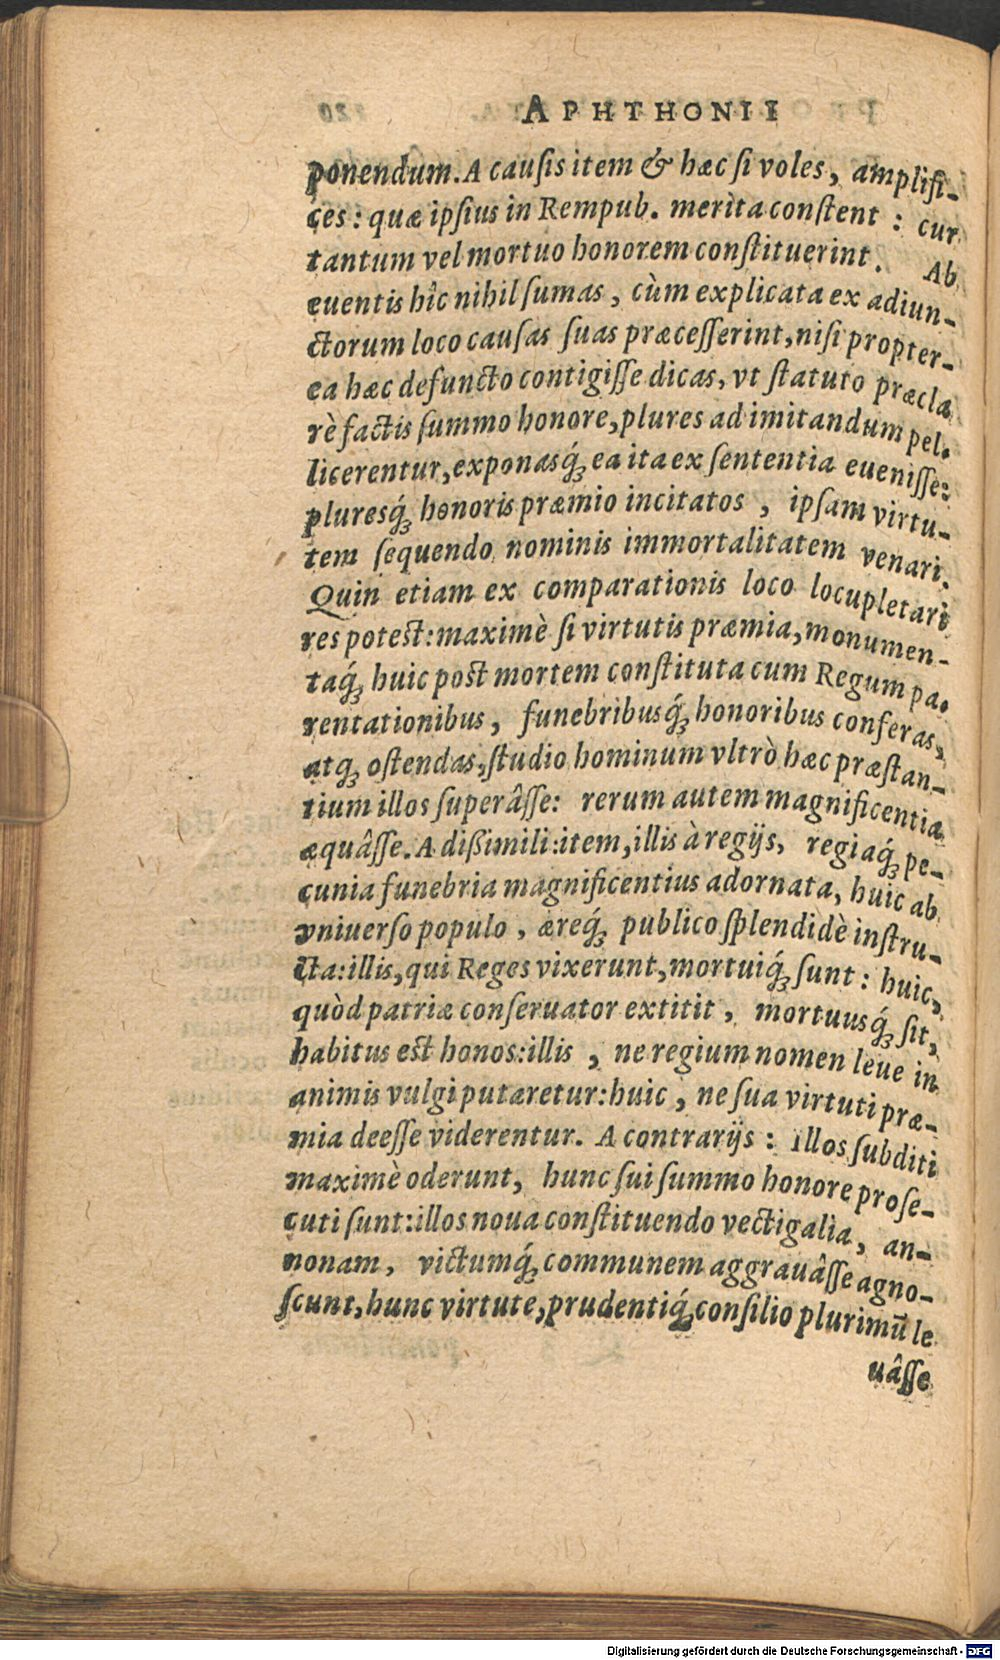 APHTHONII
ponendum. A causis item & hæc si voles, amplifi-
ces: quæ ipsius in Rempub. merita constent: cur
tantum vel mortuo honorem constituerint. Ab
euentis hîc nihil sumas, cùm explicata ex adiun-
ctorum loco causas suas præcesserint, nisi propter-
ea hæc defuncto contigisse dicas, vt statuto præcla
rè factis summo honore, plures ad imitandum pel-
licerentur, exponasq́; ea ita ex sententia euenisse:
pluresq́; honoris præmio incitatos, ipsam virtu-
tem sequendo nominis immortalitatem venari.
Quin etiam ex comparationis loco locupletari
res potest: maximè si virtutis præmia, monumen-
taq́; huic post mortem constituta cum Regum pa-
rentationibus, funebribusq́; honoribus conferas,
atq; ostendas, studio hominum vltrò hæc præstan-
tium illos superâsse: rerum autem magnificentia
æquâsse. A dißimili: item, illis à regijs, regiaq́; pe-
cunia funebria magnificentius adornata, huic ab
vniuerso populo, æreq́; publico splendidè instru-
cta: illis, qui Reges vixerunt, mortuiq́; sunt: huic,
quòd patriæ conseruator extitit, mortuusq́; sit,
habitus est honos: illis, ne regium nomen leue in
animis vulgi putaretur: huic, ne sua virtuti præ-
mia deesse viderentur. A contrarijs: Illos subditi
maximè oderunt, hunc sui summo honore prose-
cuti sunt: illos noua constituendo vectigalia, an-
nonam, victumq́; communem aggrauâsse agno-
scunt, hunc virtute, prudentiq́; consilio plurimũ le
uâsse
Digitalisierung gefördert durch die Deutsche Forschungsgemeinschaft - DFG